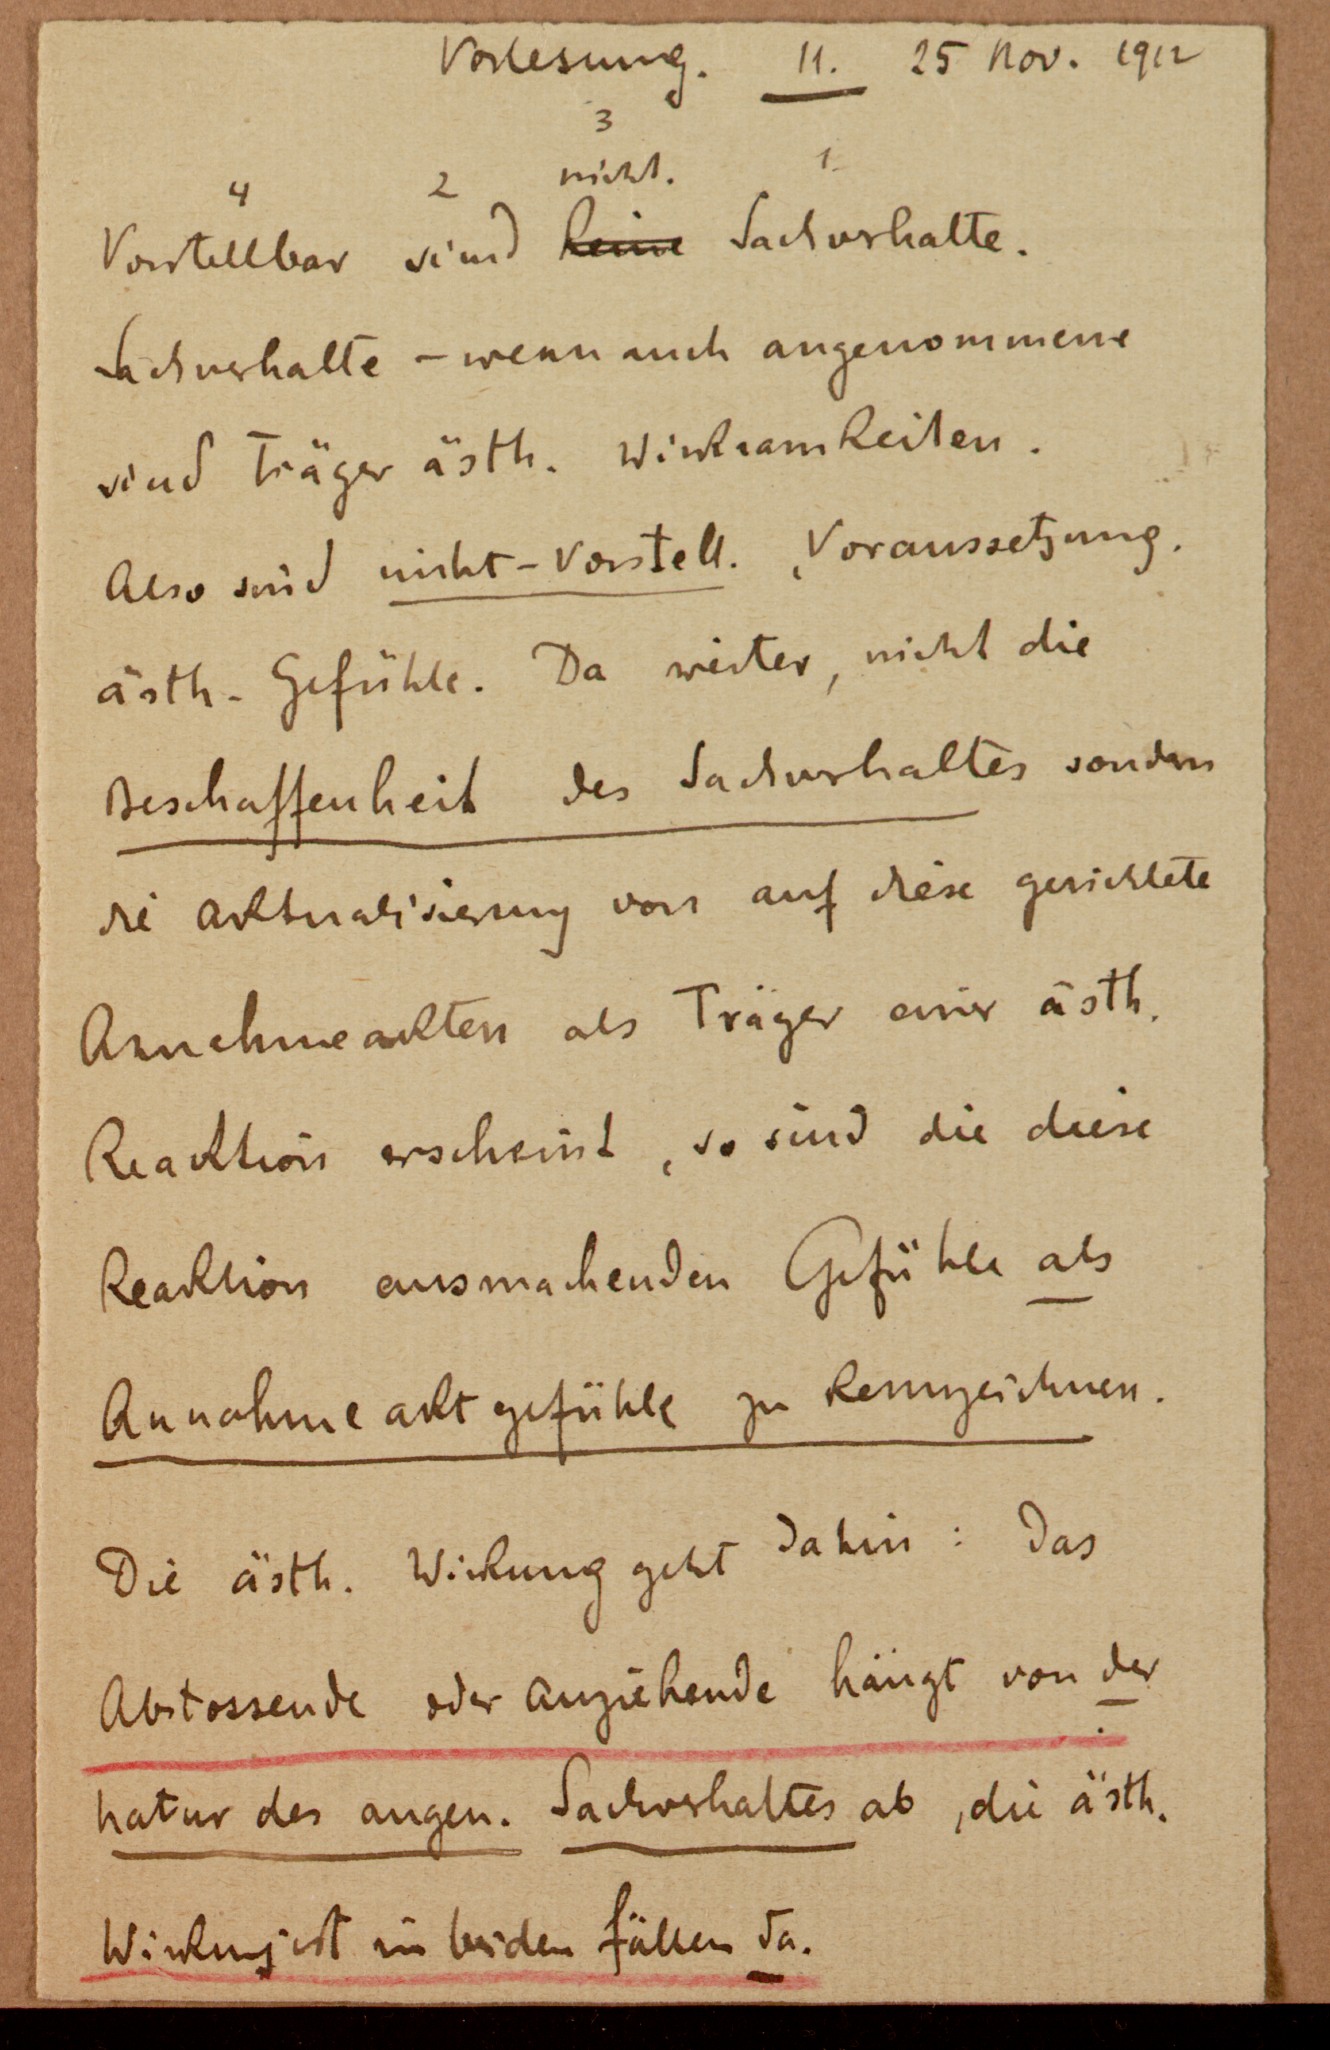 Vorlesung. 11. 25 Nov. 1912
3
4 2 nicht. 1
Vorstellbar sind keine Sachverhalte.
Sachverhalte – wenn auch angenommene
sind Träger ästh. Wirksamkeiten.
Also sind nicht-Vorstell. Voraussetzung.
ästh. Gefühle. Da weiter, nicht die
Beschaffenheit des Sachverhaltes sondern
die Aktualisierung von auf diese gerichtete
Annehmeakten als Träger einer ästh.
Reaktion erscheint, so sind die diese
Reaktion ausmachenden Gefühle als
Annahmeaktgefühle zu kennzeichnen.
Die ästh. Wirkung geht dahin: Das
Abstossende oder Anziehende hängt von der
Natur des angen. Sachverhaltes ab, die ästh.
Wirkung ist in beiden Fällen da.